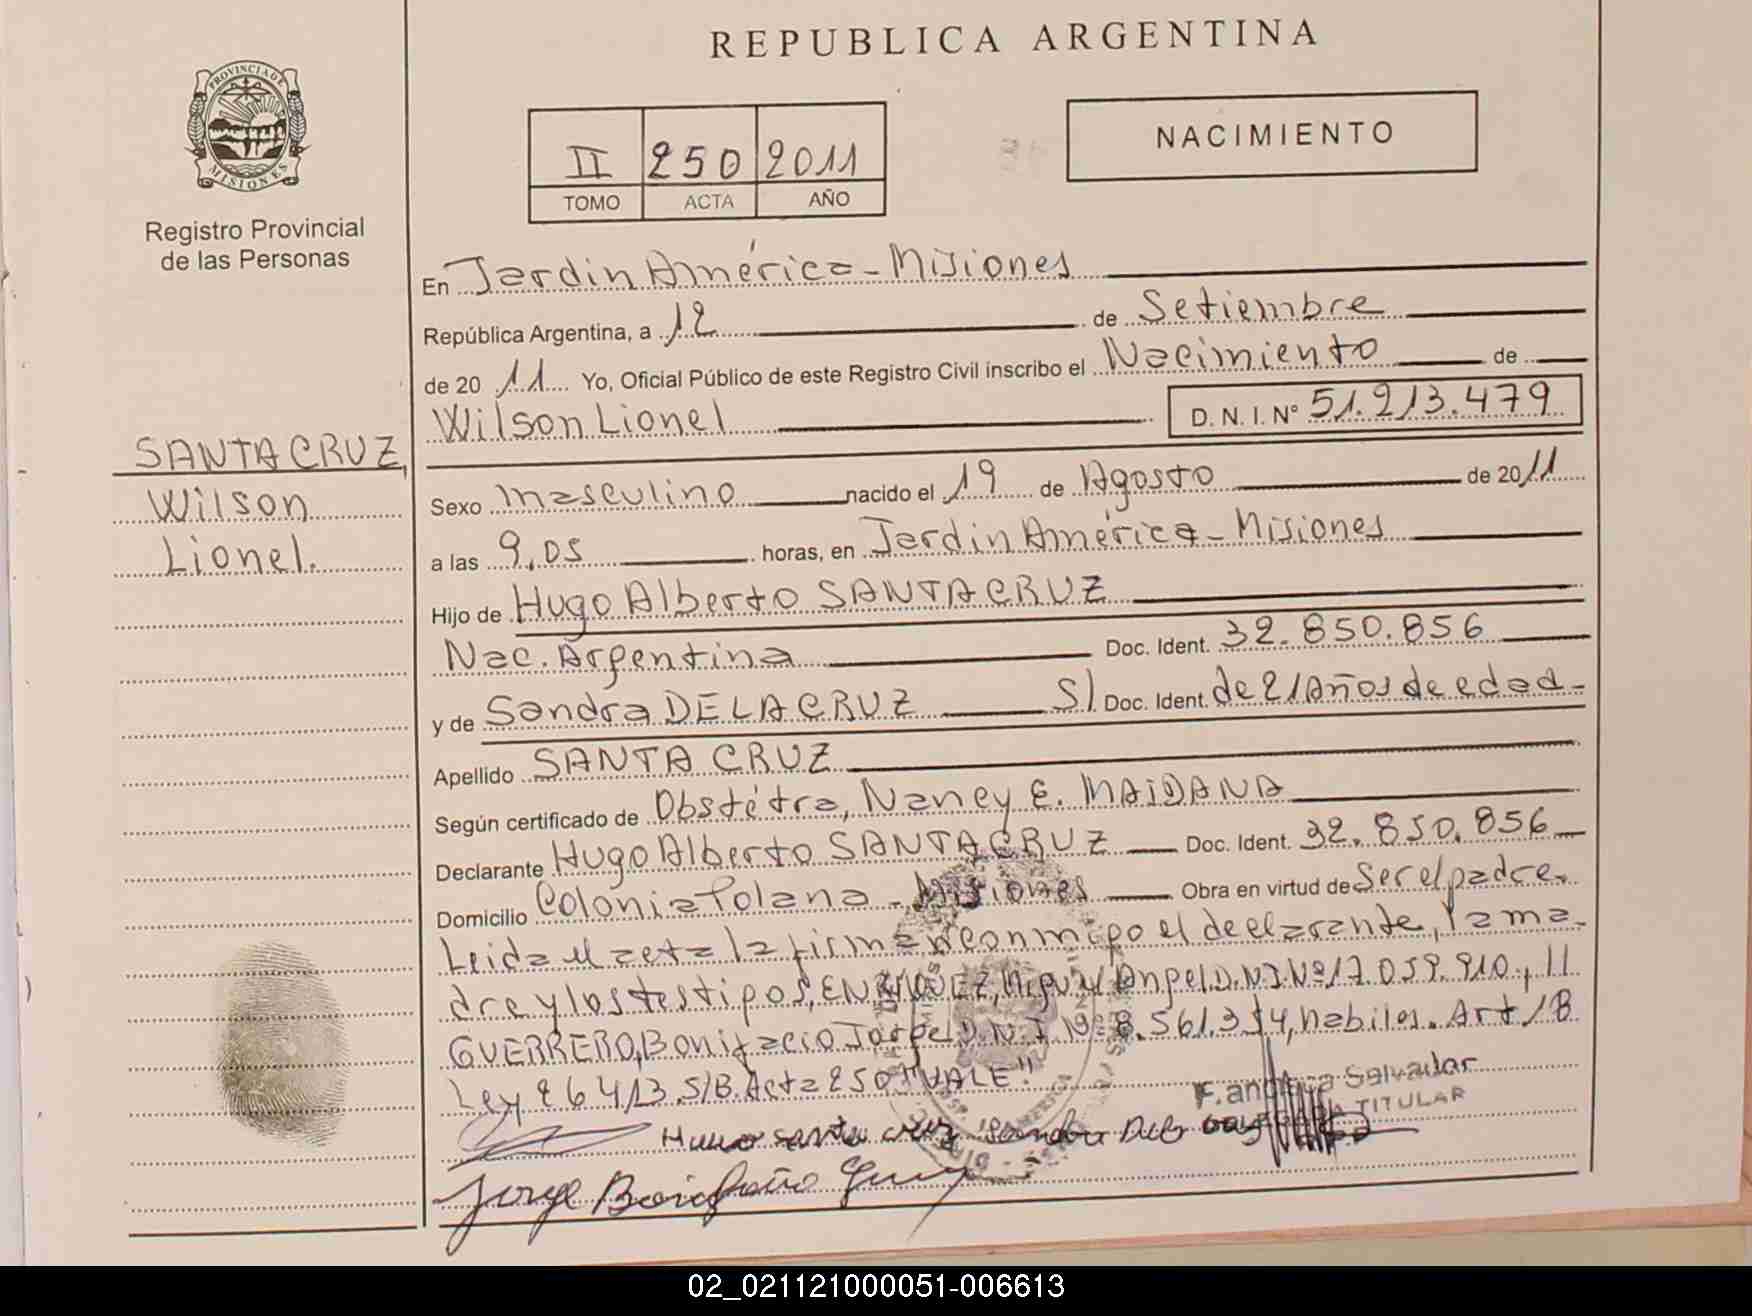 REPUBLICA ARGENTINA
PROVINCIA DE
MISIONES
Registro Provincial
de las Personas
II 250 2011
TOMO ACTA AÑO
NACIMIENTO
SANTACRUZ,
Wilson
Lionel.
En Jardin América - Misiones
República Argentina, a 12 de Setiembre
de 20 11 Yo, Oficial Público de este Registro Civil inscribo el Nacimiento de
Wilson Lionel D. N. I. N° 51.213.479
Sexo masculino nacido el 19 de Agosto de 20 11
a las 9,05 horas, en Jardin América - Misiones
Hijo de Hugo Alberto SANTACRUZ
Nac. Argentina Doc. Ident. 32.850.856
y de Sandra DE LA CRUZ S/ Doc. Ident. de 21 Años de edad -
Apellido SANTA CRUZ
Según certificado de Obstétra, Nancy E. MAIDANA
Declarante Hugo Alberto SANTACRUZ Doc. Ident. 32.850.856
Domicilio Colonia Polana - Misiones Obra en virtud de Ser el padre.
Leida el acta la firman conmigo el declarante, la ma-
dre y los testigos, ENRIQUEZ, Miguel Angel D.N.I.Nº 17.059.910, 
GUERRERO, Bonifacio Jorge D.N.I Nº 8.561.354, habiles. Art/18
Ley 26413. S/B. Acta 250 "VALE".
Salvador
TITULAR
Hugo santa cruz Sandra
Jorge Bonifacio
02_021121000051-006613